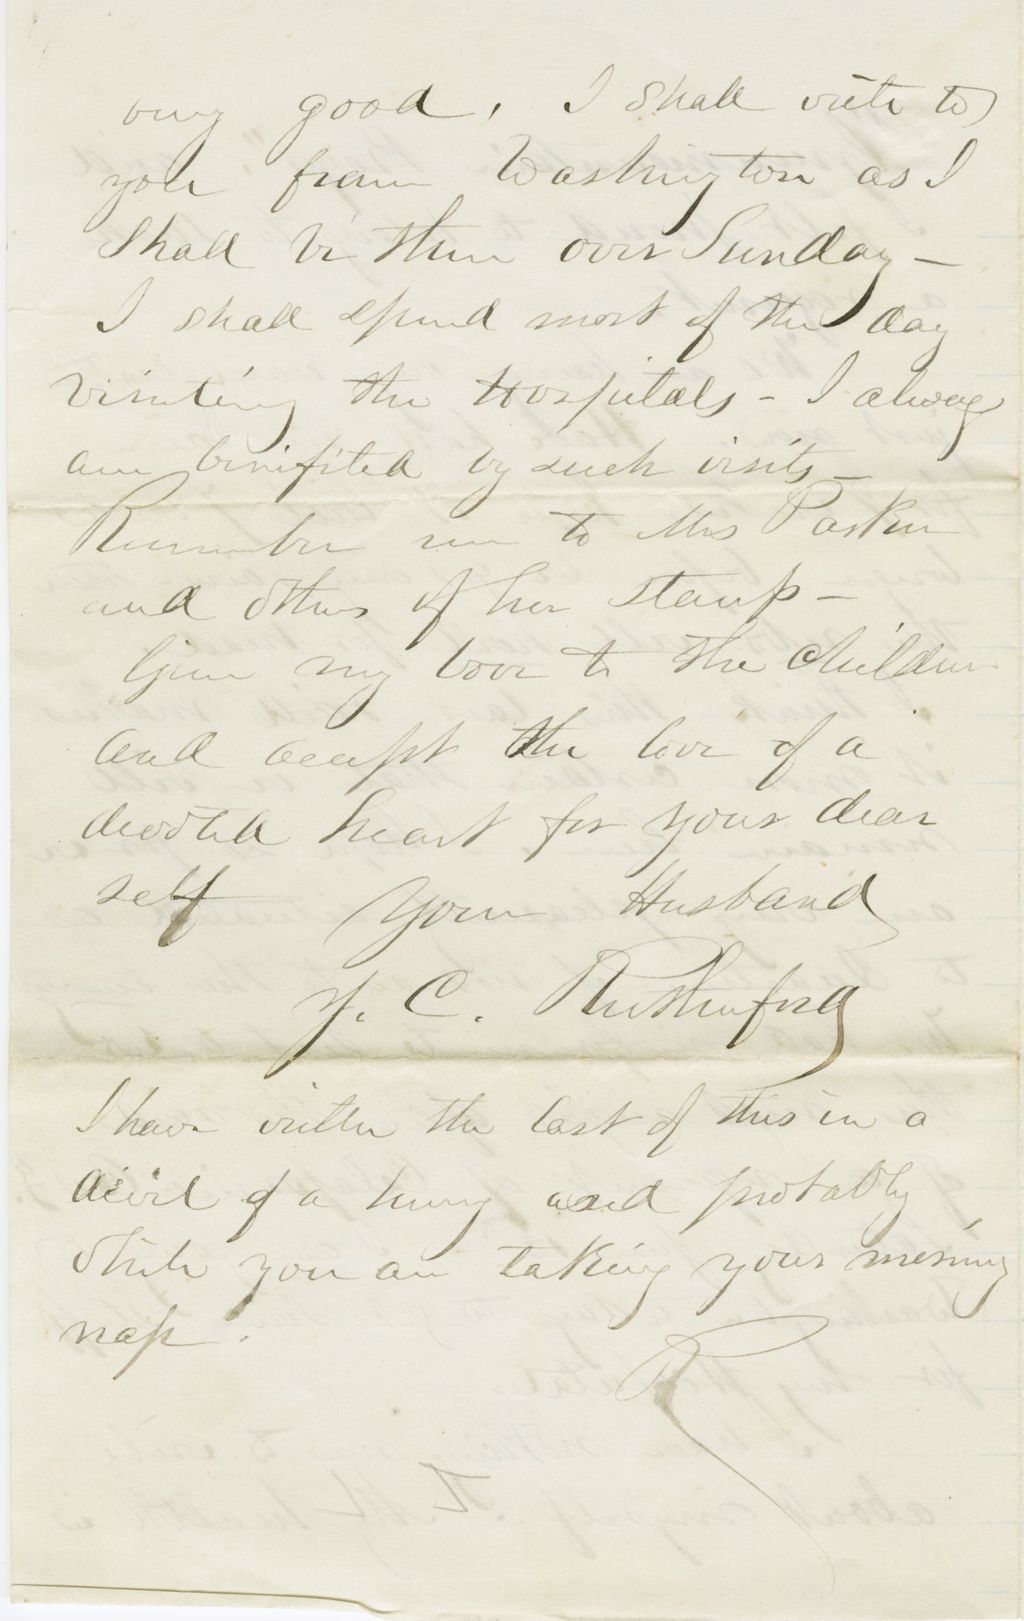 very good, I shall write to
you from Washington as I
shall be there over Sunday -
I shall spend most of the day
visiting the Hospitals - I always
am benifited by such visits -
Remember me to Mrs Parker
and others of her stamp -
Give my love to the children
and accept the love of a
devoted heart for your dear
self Your Husband
J. C. Rutherford
I have written the last of this in a
devil of a hurry and probably
while you are taking your morning
nap.
R